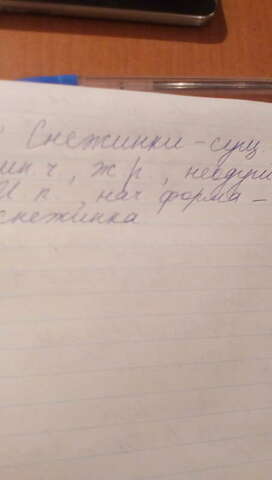 Снежинки - сущ.
мн ч, ж р, неодуш
И п, нач форма -
снежинка